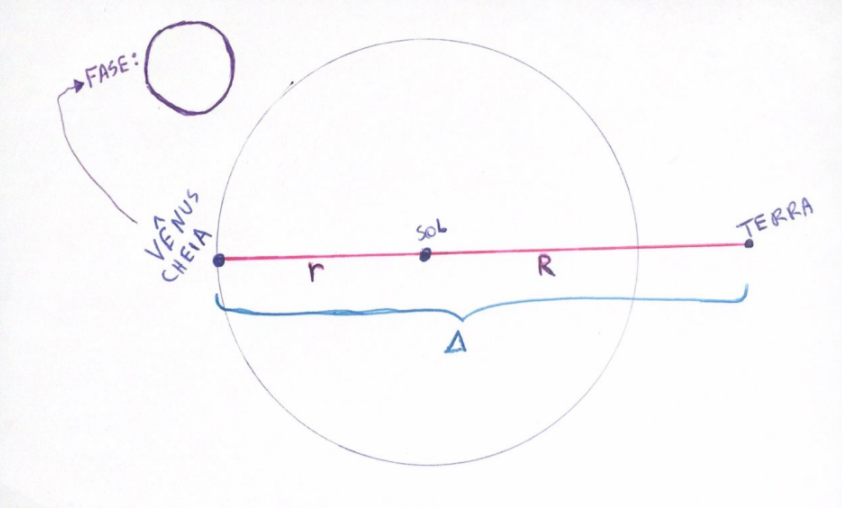 FASE:
VÊNUS
CHEIA
SOL
TERRA
r
R
Δ